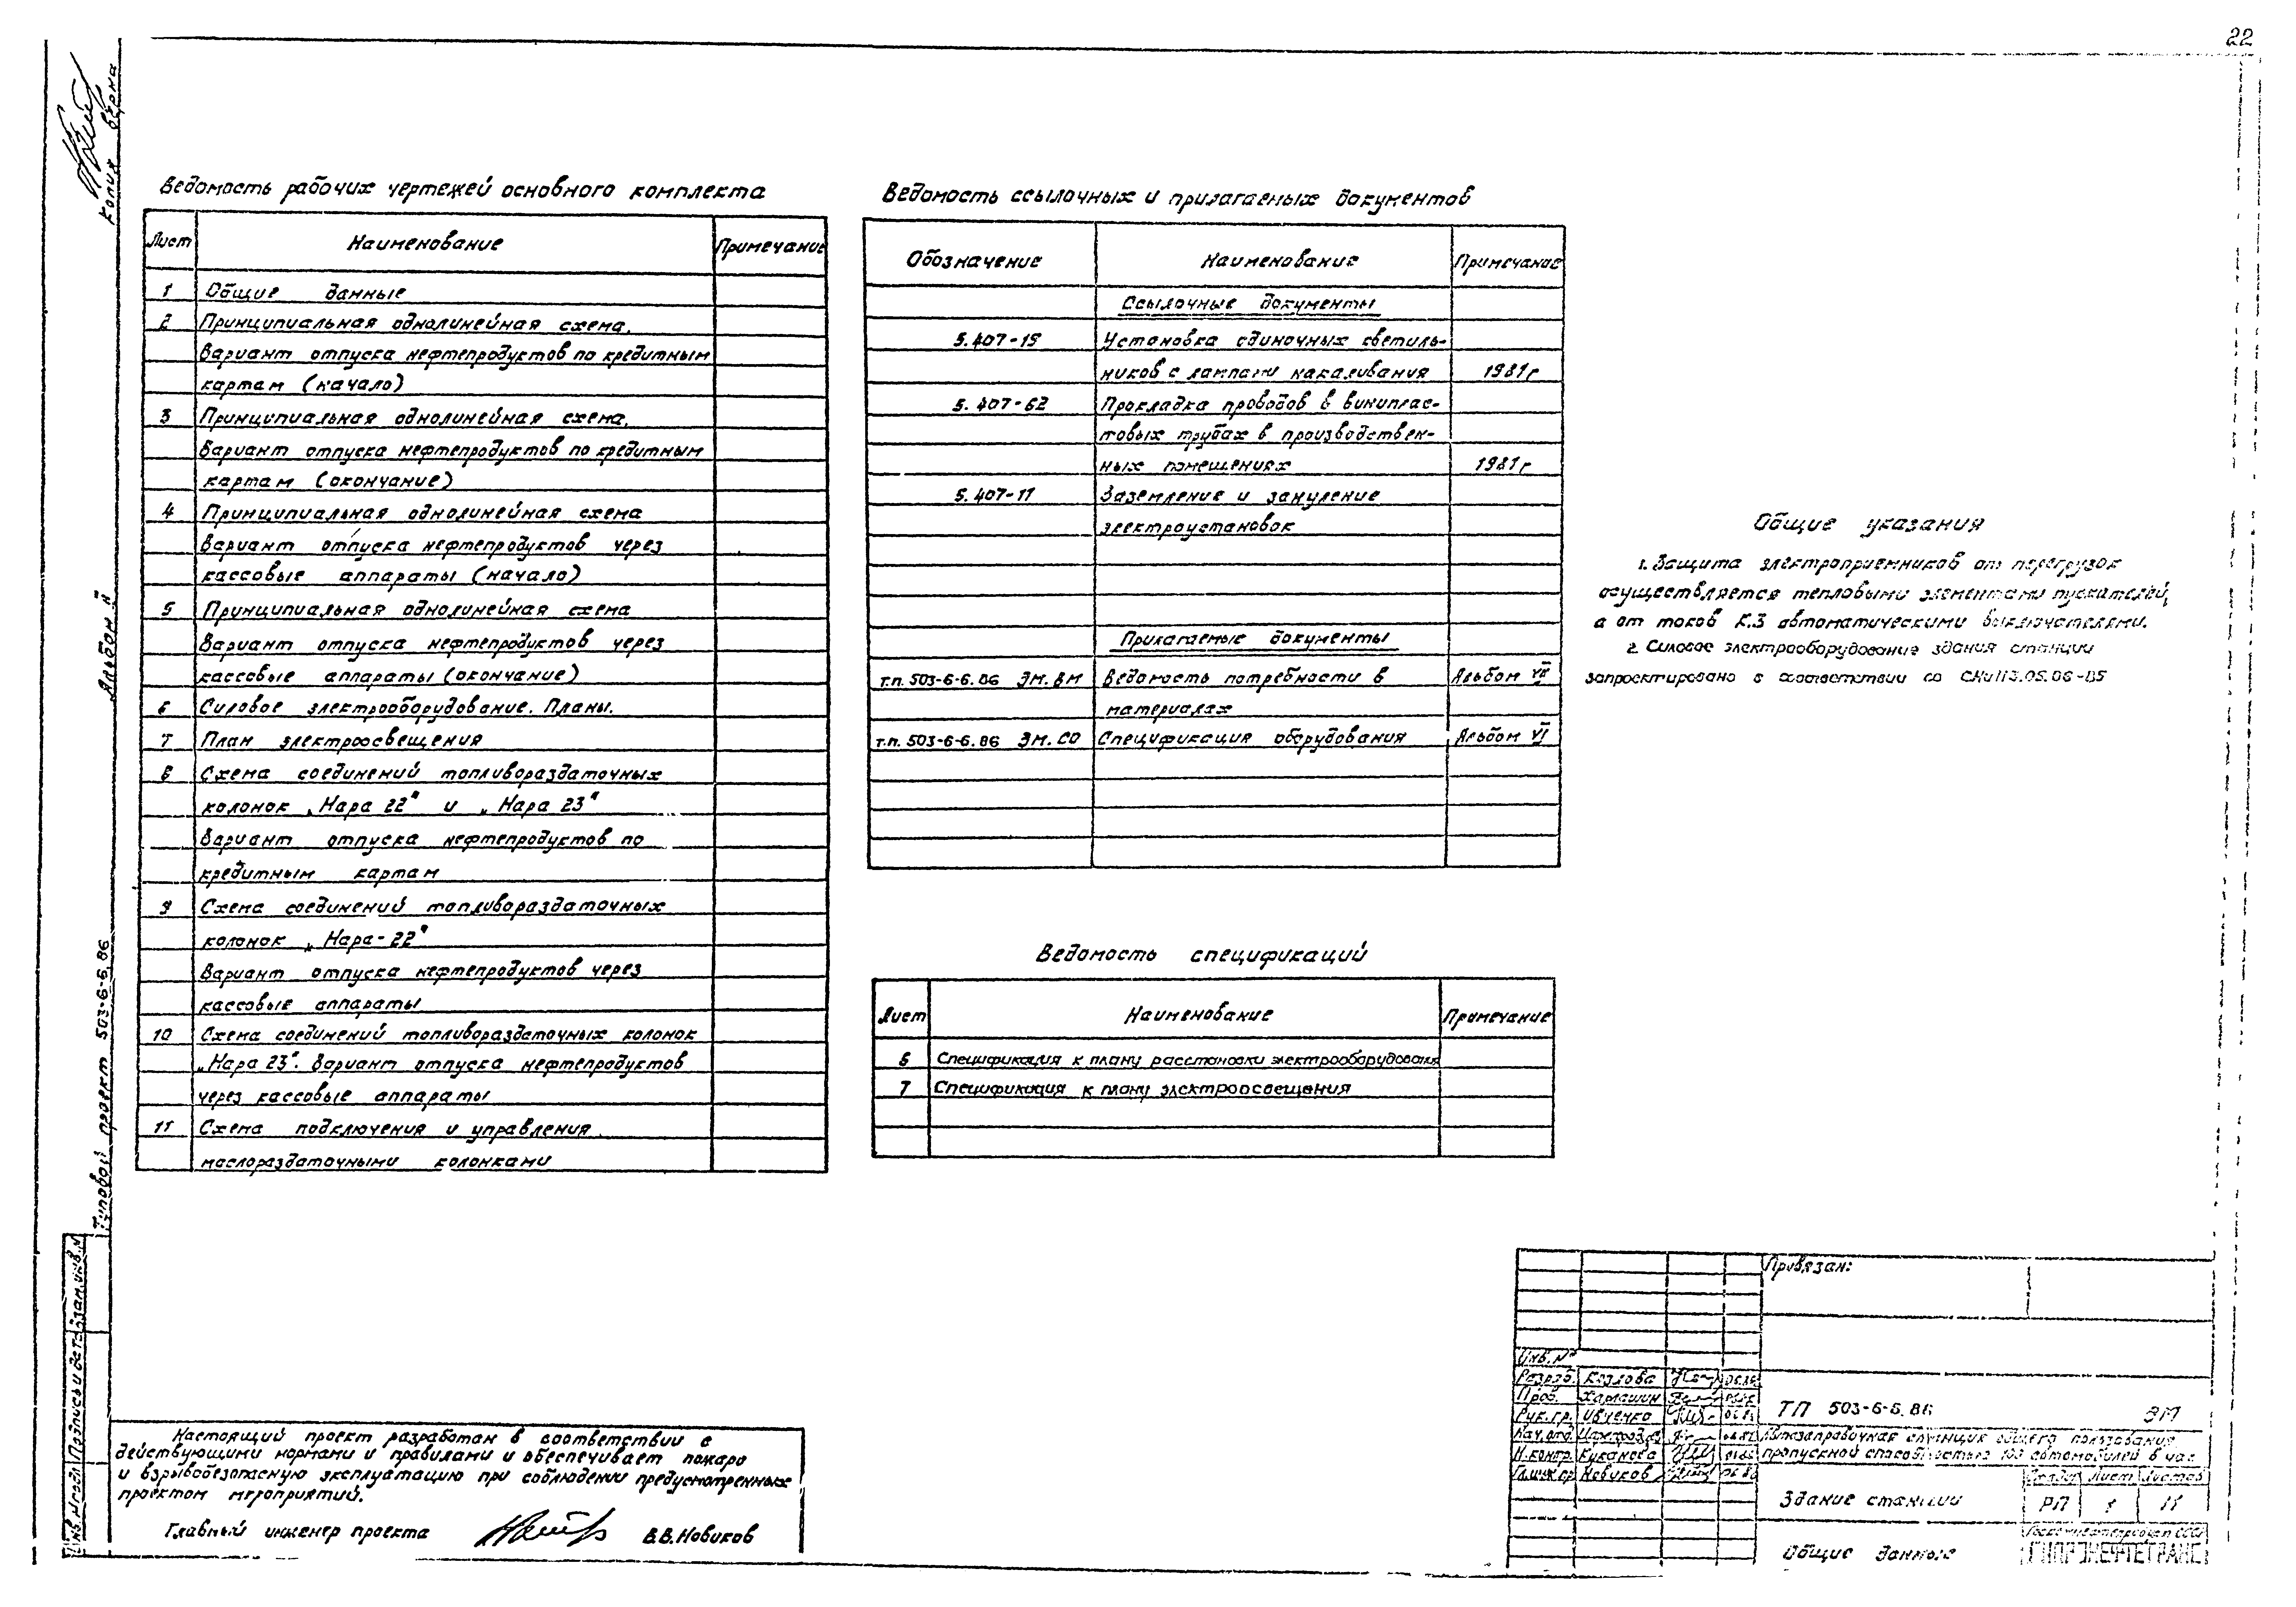 22
Копия верна
Альбом II
Типовой проект 503-6-6.86
Ведомость рабочих чертежей основного комплекта
Лист Наименование Примечание
1 Общие данные
2 Принципиальная однолинейная схема.
Вариант отпуска нефтепродуктов по кредитным
картам (начало)
3 Принципиальная однолинейная схема.
Вариант отпуска нефтепродуктов по кредитным
картам (окончание)
4 Принципиальная однолинейная схема
Вариант отпуска нефтепродуктов через
кассовые аппараты (начало)
5 Принципиальная однолинейная схема
Вариант отпуска нефтепродуктов через
кассовые аппараты (окончание)
6 Силовое электрооборудование. Планы.
7 План электроосвещения
8 Схема соединений топливораздаточных
колонок „Нара 22" и „Нара 23"
Вариант отпуска нефтепродуктов по
кредитным картам
9 Схема соединений топливораздаточных
колонок „Нара-22"
Вариант отпуска нефтепродуктов через
кассовые аппараты
10 Схема соединений топливораздаточных колонок
„Нара 23". Вариант отпуска нефтепродуктов
через кассовые аппараты
11 Схема подключения и управления
маслораздаточными колонками
Ведомость ссылочных и прилагаемых документов
Обозначение Наименование Примечание
Ссылочные документы
5.407-15 Установка одиночных светиль-
ников с лампами накаливания 1981г
5.407-62 Прокладка проводов в виниплас-
товых трубах в производствен-
ных помещениях 1981г
5.407-11 Заземление и зануление
электроустановок
Прилагаемые документы
т.п. 503-6-6.86 ЭМ.ВМ Ведомость потребности в Альбом VII
материалах
т.п. 503-6-6.86 ЭМ.СО Спецификация оборудования Альбом VI
Ведомость спецификаций
Лист Наименование Примечание
6 Спецификация к плану расстановки электрооборудования
7 Спецификация к плану электроосвещения
Общие указания
1. Защита электроприемников от перегрузок
осуществляется тепловыми элементами пускателей,
а от токов К.З автоматическими выключателями.
2. Силовое электрооборудование здания станции
запроектировано в соответствии со СНиП3.05.06-85
Настоящий проект разработан в соответствии с
действующими нормами и правилами и обеспечивает пожаро
и взрывобезопасную эксплуатацию при соблюдении предусмотренных
проектом мероприятий.
Главный инженер проекта В.В.Новиков
Инв.№подл Подпись и дата Взам.инв.№
Привязан:
Инв.№
Разраб. Козлова
Пров. Харлашин
Рук.гр. Ивченко
Нач.отд.
Н.контр. Куканова
Гл.инж.пр Новиков
ТП 503-6-6.86 ЭМ
Автозаправочная станция общего пользования
пропускной способностью 100 автомобилей в час
Здание станции
Стадия Лист Листов
РП 1 11
Общие данные
Госкомнефтепродукт СССР
ГИПРОНЕФТЕТРАНС